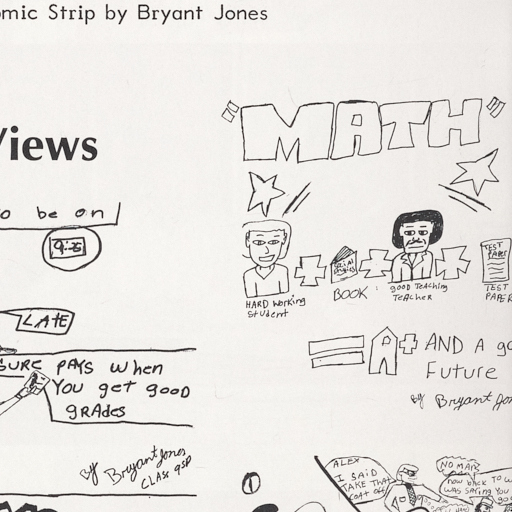 omic Strip by Bryant Jones
Views
o be on
9:25
LATE
SURE PAYS when
You get good
grAdes
By Bryant Jones
CLASS 9SP
"MATH"
HARD working
student
BOOK
good Teaching
Teacher
TEST
PAPER
TEST
PAPER
= A+ AND A go
Future
By Bryant Jon
1
ALEX
I SAID
TAKE THAT
COAT OFF
NO MAP
now back to w
was saying you